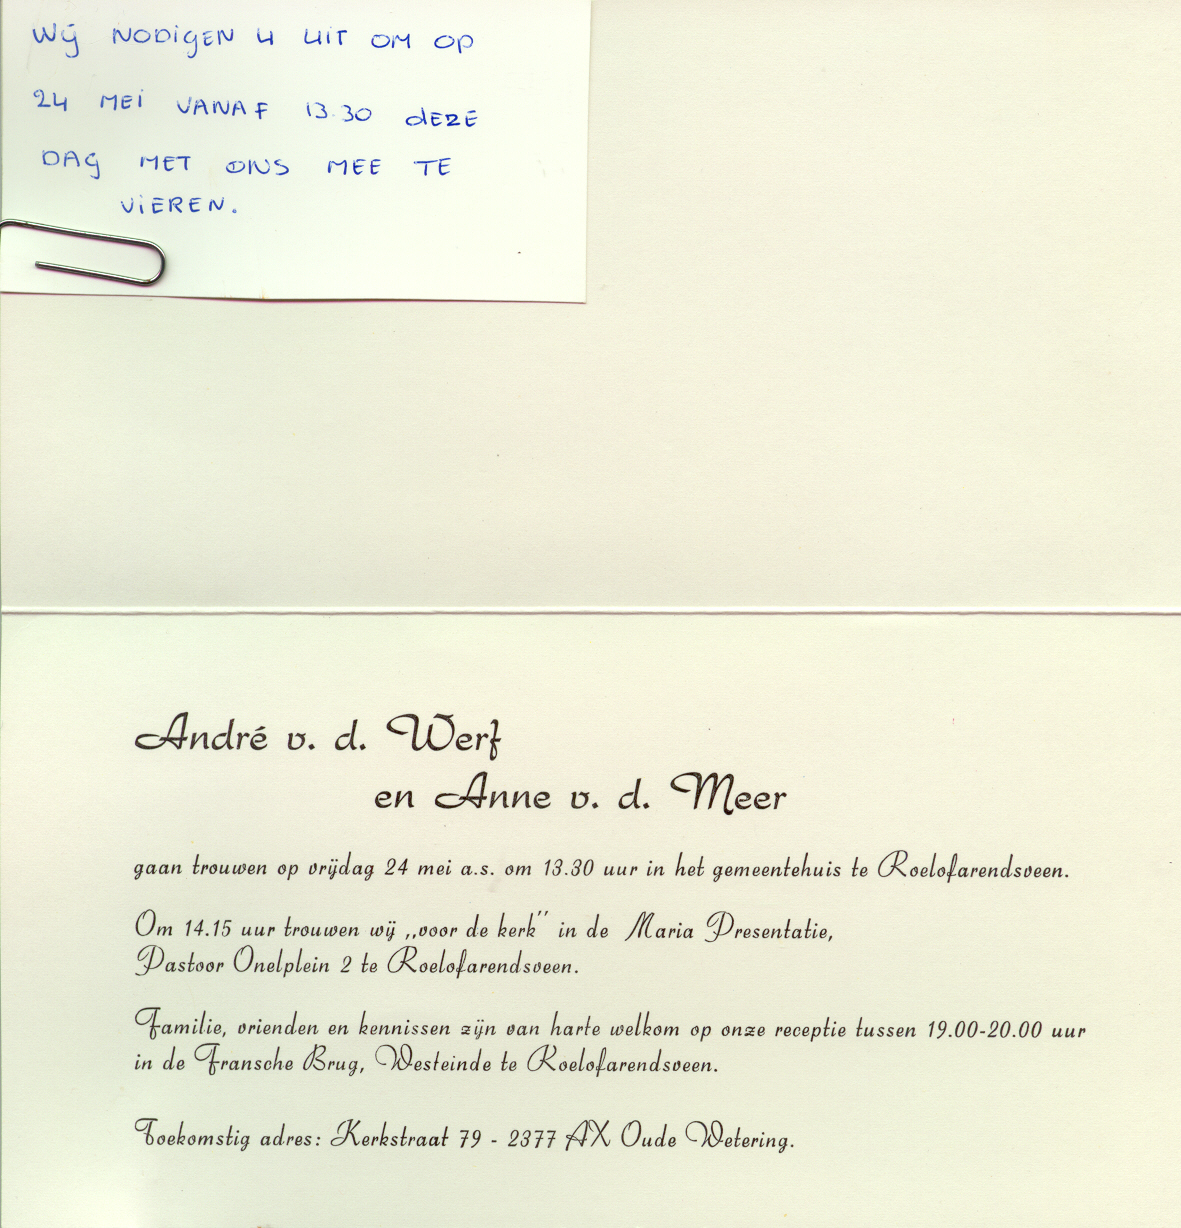 Wij NODIGEN U UIT OM OP
24 MEI VANAF 13.30 dEZE
DAG MET ONS MEE TE
VIEREN.
André v. d. Werf
en Anne v. d. Meer
gaan trouwen op vrijdag 24 mei a.s. om 13.30 uur in het gemeentehuis te Roelofarendsveen.
Om 14.15 uur trouwen wij ,,voor de kerk" in de Maria Presentatie,
Pastoor Onelplein 2 te Roelofarendsveen.
Familie, vrienden en kennissen zijn van harte welkom op onze receptie tussen 19.00-20.00 uur
in de Fransche Brug, Westeinde te Roelofarendsveen.
Toekomstig adres: Kerkstraat 79 - 2377 AX Oude Wetering.